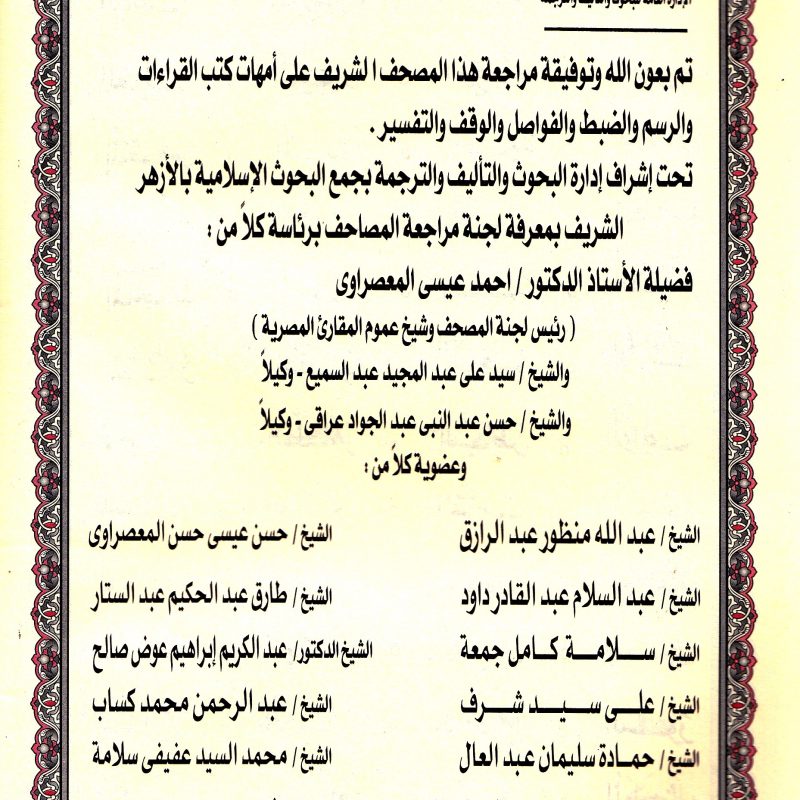 الإدارة العامة للبحوث والتأليف والترجمة
تم بعون الله وتوفيقة مراجعة هذا المصحف الشريف على أمهات كتب القراءات
والرسم والضبط والفواصل والوقف والتفسير .
تحت إشراف إدارة البحوث والتأليف والترجمة بجمع البحوث الإسلامية بالأزهر
الشريف بمعرفة لجنة مراجعة المصاحف برئاسة كلاً من :
فضيلة الأستاذ الدكتور / احمد عيسى المعصراوى
( رئيس لجنة المصحف وشيخ عموم المقارئ المصرية )
والشيخ / سيد على عبد المجيد عبد السميع - وكيلاً
والشيخ / حسن عبد النبى عبد الجواد عراقى - وكيلاً
وعضوية كلاً من :
الشيخ / عبد الله منظور عبد الرازق الشيخ / حسن عيسى حسن المعصراوى
الشيخ / عبد السلام عبد القادر داود الشيخ / طارق عبد الحكيم عبد الستار
الشيخ / سلامة كامل جمعة الشيخ الدكتور/ عبد الكريم إبراهيم عوض صالح
الشيخ / على سيد شرف الشيخ / عبد الرحمن محمد كساب
الشيخ / حمادة سليمان عبد العال الشيخ / محمد السيد عفيفى سلامة